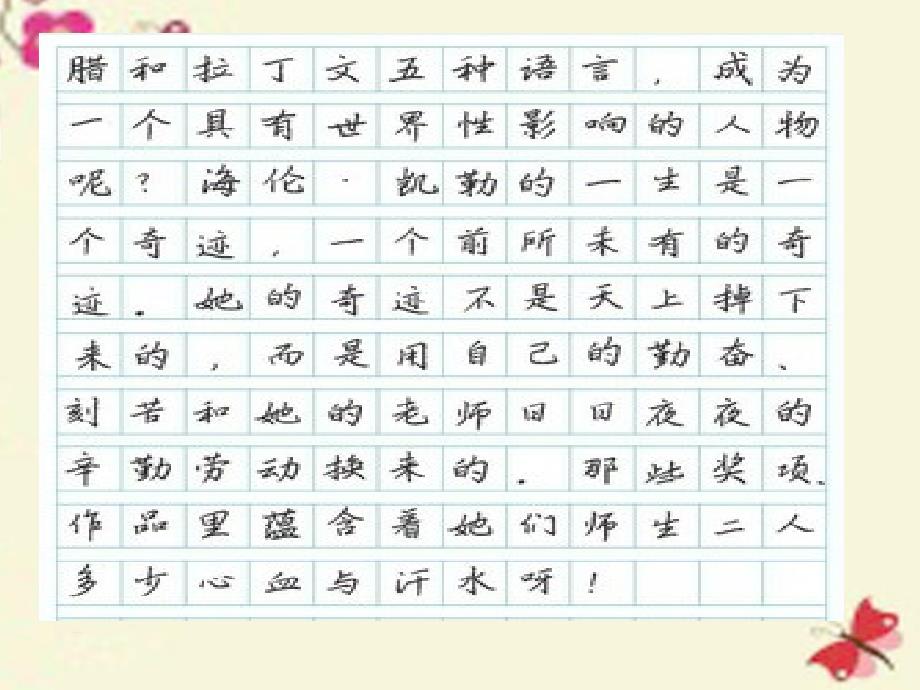 腊和拉丁文五种语言，成为
一个具有世界性影响的人物
呢？海伦·凯勤的一生是一
个奇迹，一个前所未有的奇
迹.她的奇迹不是天上掉下
来的，而是用自己的勤奋、
刻苦和她的老师日日夜夜的
辛勤劳动换来的.那些奖项、
作品里蕴含着她们师生二人
多少心血与汗水呀！